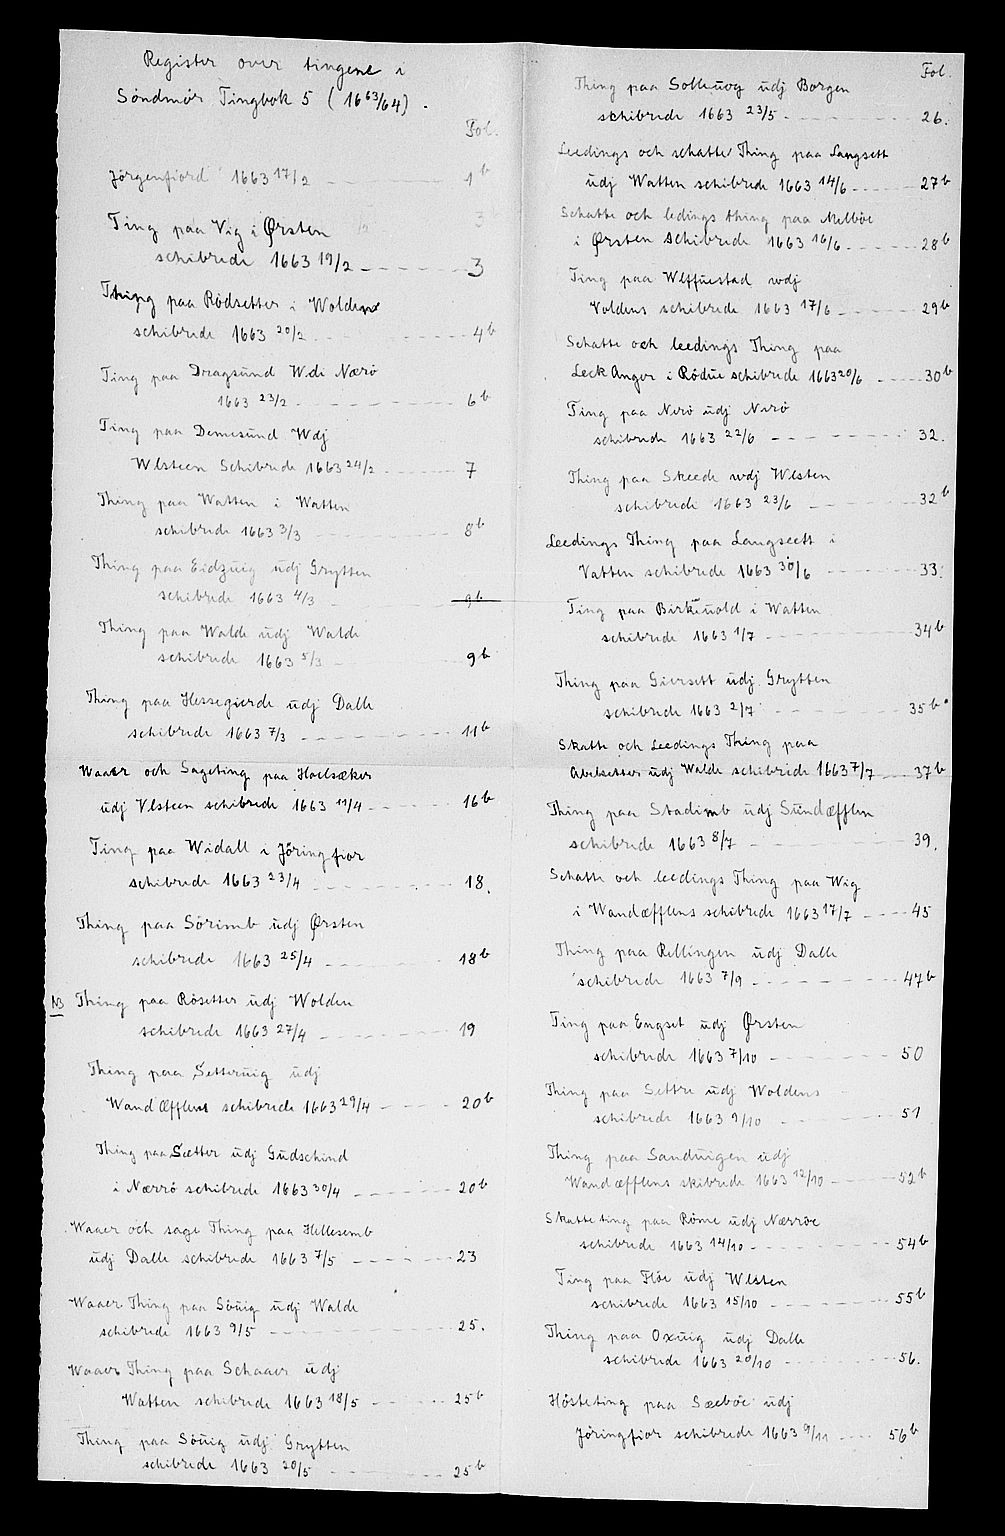 Register over tingene i
Söndmör Tingbok 5 (1663/64).
Fol.
Jörgenfiord 1663 17/2 1b
Ting paa Vig i Ørsten
schibrede 1663 19/2 3
Thing paa Rödsetter i Wolden
schibrede 1663 20/2 4b
Ting paa Dragsund Wdi Nærö
1663 23/2 6b
Ting paa Demesund Wdj
Wlsteen Schibrede 1663 24/2 7
Thing paa Watten i Watten
schibrede 1663 3/3 8b
Thing paa Eidzuig udj Grytten
schibrede 1663 4/3 9b
Thing paa Walde udj Walde
schibrede 1663 5/3 9b
Thing paa Hessegierde udj Dalle
schibrede 1663 7/3 11b
Waaer och Sageting paa Haelsæker
udj Vlsteen schibrede 1663 11/4 16b
Ting paa Widall i Jöringfior
schibrede 1663 23/4 18.
Thing paa Sörimb udj Ørsten
schibrede 1663 25/4 18b
NB Thing paa Rösetter udj Wolden
schibrede 1663 27/4 19
Thing paa Setteruig udj
Wandæfflens schibrede 1663 29/4 20b
Thing paa Sætter udj Gudschind
i Nærrö schibrede 1663 30/4 20b
Waaer och sage Thing paa Hellesemb
udj Dalle schibrede 1663 7/5 23
Waaer Thing paa Söuig udj Walde
schibrede 1663 9/5 25.
Waaer Thing paa Schaaer udj
Watten schebrede 1663 18/5 25b
Thing paa Söuig udj Grytten
schibrede 1663 20/5 25b
Fol.
Thing paa Solleuog udj Borgen
schibrede 1663 23/5 26.
Leedings och schatte Thing paa Langsett
udj Watten schibrede 1663 14/6 27b
Schatte och ledings thing paa Melböe
i Ørsten schibrede 1663 16/6 28b
Ting paa Wlffuestad wdj
Voldens schibrede 1663 17/6 29b
Schatte och leedings Thing paa
Leck Anger i Rödue schibrede 1663 20/6 30b
Ting paa Nerö udj Nerö
schibrede 1663 22/6 32.
Thing paa Skeede wdj Wlsten
schibrede 1663 23/6 32b
Leedings Thing paa Langseett i
Vatten schibrede 1663 30/6 33.
Ting paa Birkeuold i Watten
schibrede 1663 1/7 34b
Thing paa Giersett udj Grytten
schibrede 1663 2/7 35b
Skatte och Leedings Thing paa
Abelsetter udj Walde schibrede 1663 7/7 37b
Thing paa Stadimb udj Sundæfflen
schibrede 1663 8/7 39.
Schatte och leedings Thing paa Wig
i Wandæfflens schibrede 1663 17/7 45
Thing paa Rellingen udj Dalle
schibrede 1663 7/9 47b
Ting paa Engset udj Ørsten
schibrede 1663 7/10 50
Thing paa Settre udj Woldens
schibrede 1663 9/10 51
Thing paa Sanduigen udj
Wandæfflens skibrede 1663 12/10 52b
Skatteting paa Röme udj Nærröe
schibrede 1663 14/10 54b
Ting paa Flöe udj Wlsten
schibrede 1663 15/10 55b
Thing paa Oxuig udj Dalle
schibrede 1663 20/10 56.
Hösteting paa Sæeböe udj
Jöringfior schibrede 1663 9/11 56b